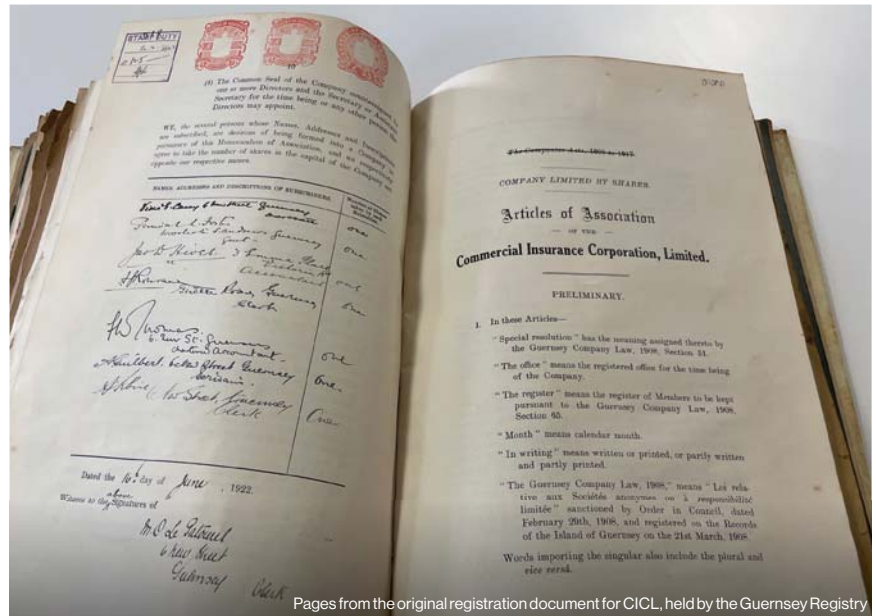 STAMP DUTY
10
(6) The Common Seal of the Company
one or more Directors and the Secretary or
Secretary for the time being or any other person the
Directors may appoint.
WE, the several persons whose Names, Addresses and Descriptions
are subscribed, are desirous of being formed into a Company in
pursuance of this Memorandum of Association, and we respectively
agree to take the number of shares in the capital of the Company set
opposite our respective names.
NAMES, ADDRESSES AND DESCRIPTIONS OF SUBSCRIBERS.
Number of Shares taken by each Subscriber.
Guernsey one
Guernsey
one
Accountant one
Guernsey
Clerk one
Thomas
Guernsey
Accountant. one
Guilbert. Street Guernsey one.
Street, Guernsey
Clerk One
Dated the 16th day of June, 1922.
above
Witness to the signatures of
New Street
Guernsey
Clerk
The Companies Acts, 1908 to 1917.
COMPANY LIMITED BY SHARES.
Articles of Association
— OF THE —
Commercial Insurance Corporation, Limited.
PRELIMINARY.
1. In these Articles—
"Special resolution" has the meaning assigned thereto by
the Guernsey Company Law, 1908, Section 51.
"The office" means the registered office for the time being
of the Company.
"The register" means the register of Members to be kept
pursuant to the Guernsey Company Law, 1908,
Section 65.
"Month" means calendar month.
"In writing" means written or printed, or partly written
and partly printed.
"The Guernsey Company Law, 1908," means "Loi rela-
tive aux Sociétés anonymes ou à responsibilité
limitée" sanctioned by Order in Council, dated
February 29th, 1908, and registered on the Records
of the Island of Guernsey on the 21st March, 1908.
Words importing the singular also include the plural and
vice versâ.
Pages from the original registration document for CICL, held by the Guernsey Registry